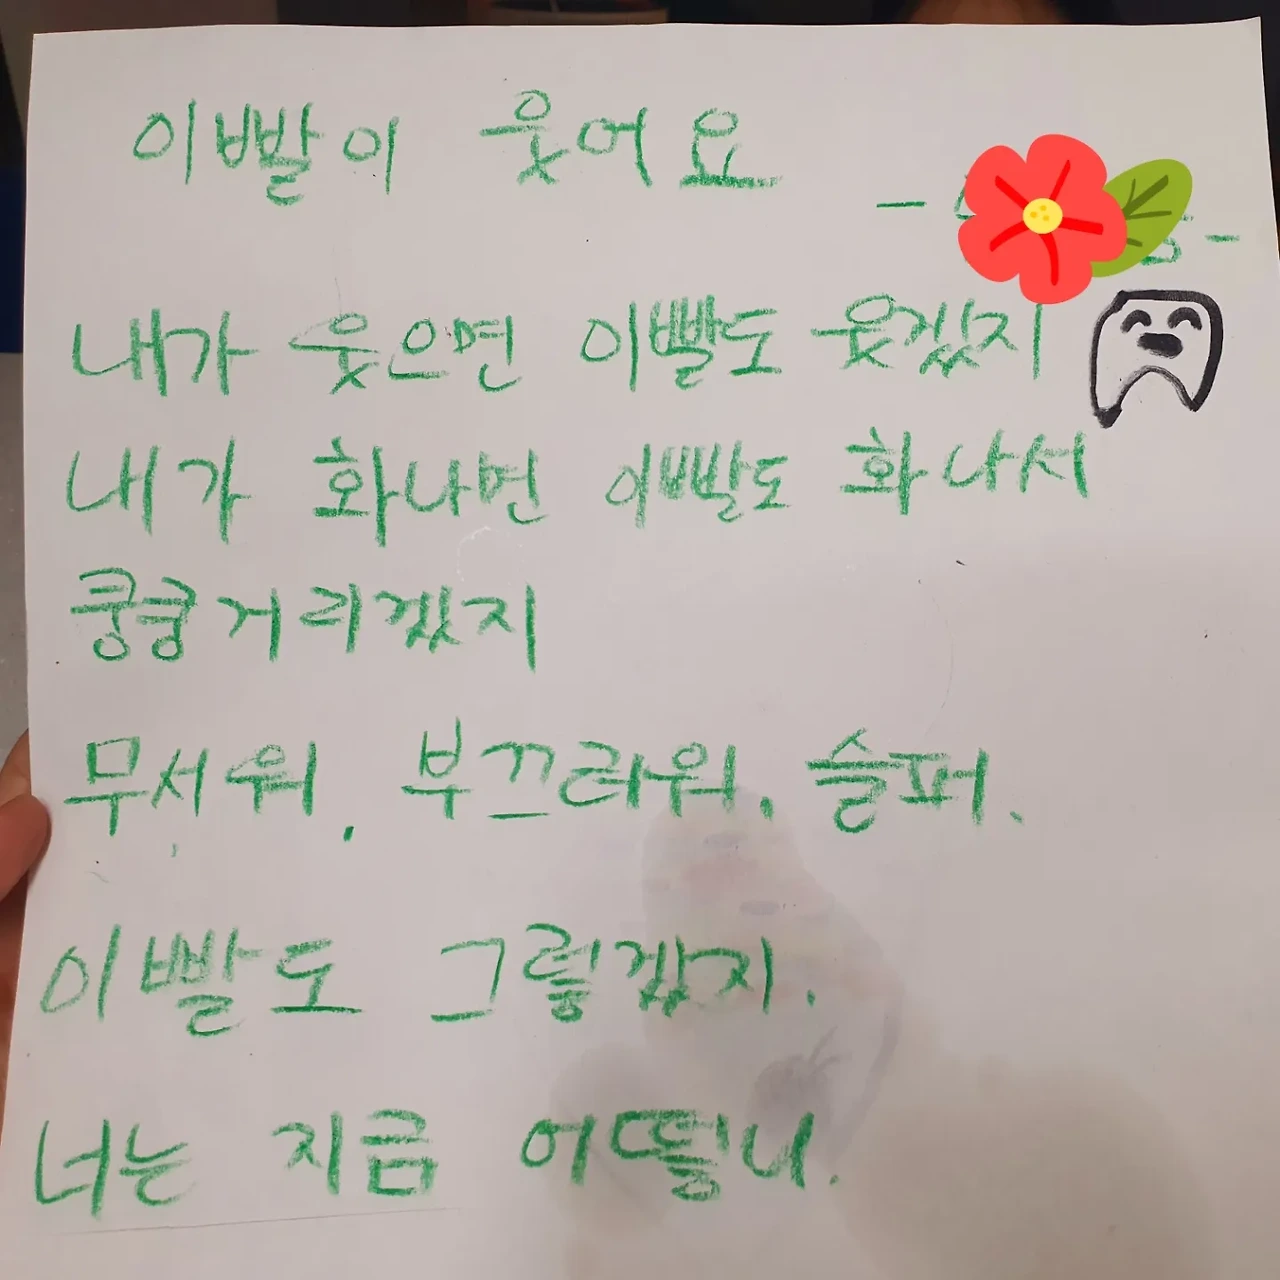 이빨이 웃어요
내가 웃으면 이빨도 웃겠지
내가 화나면 이빨도 화나서
쿵쿵거리겠지
무서워. 부끄러워. 슬퍼.
이빨도 그렇겠지.
너는 지금 어떻니.